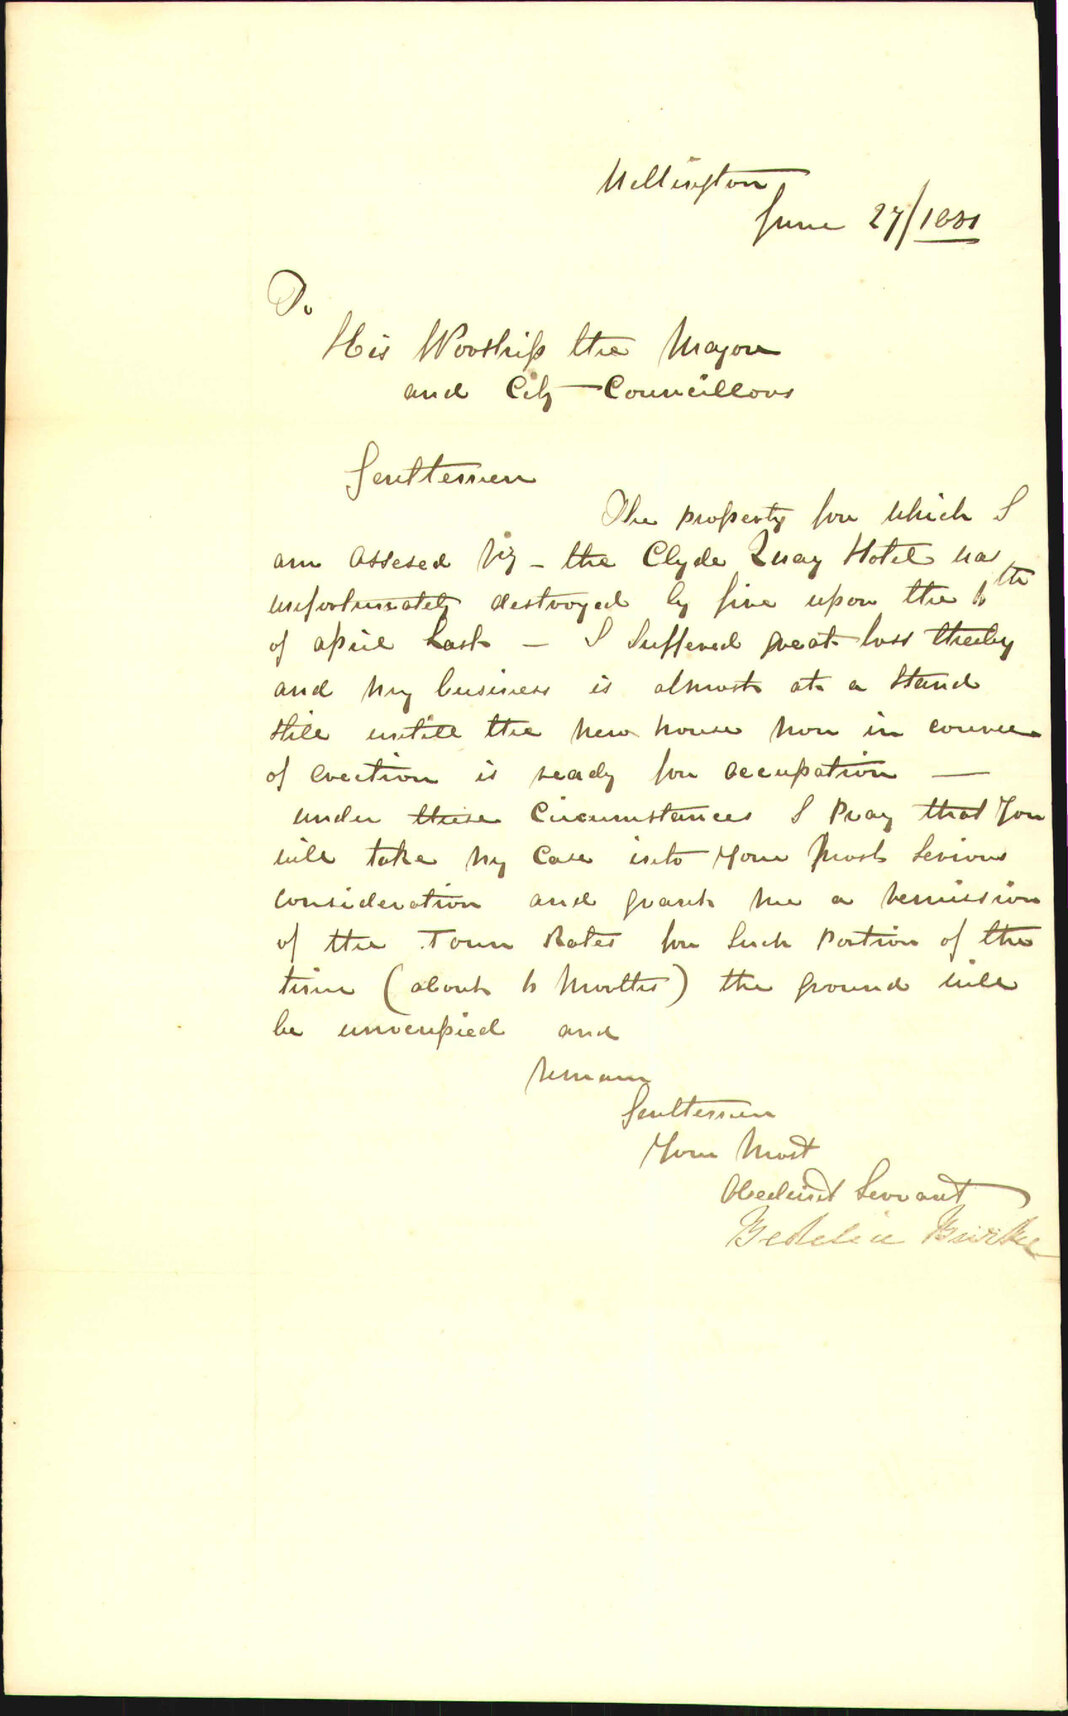 Wellington
June 27/1881
To
His Worship the Mayor
and City Councillors
Gentlemen
The property for which I
am assesed viz - the Clyde Quay Hotel was
unfortunately destroyed by fire upon the 6th
of april Last - I Suffered great loss thereby
and my business is almost at a Stand
Still untill the new house now in course
of erection is ready for occupation —
under these Circumstances I Pray that You
will take my Case into Your Most Serious
consideration and grant me a remission
of the Town Rates for Such Portion of the
time (about 6 Months) the ground will
be unocupied and
remain
Gentlemen
Your Most
Obedient Servant
Burke